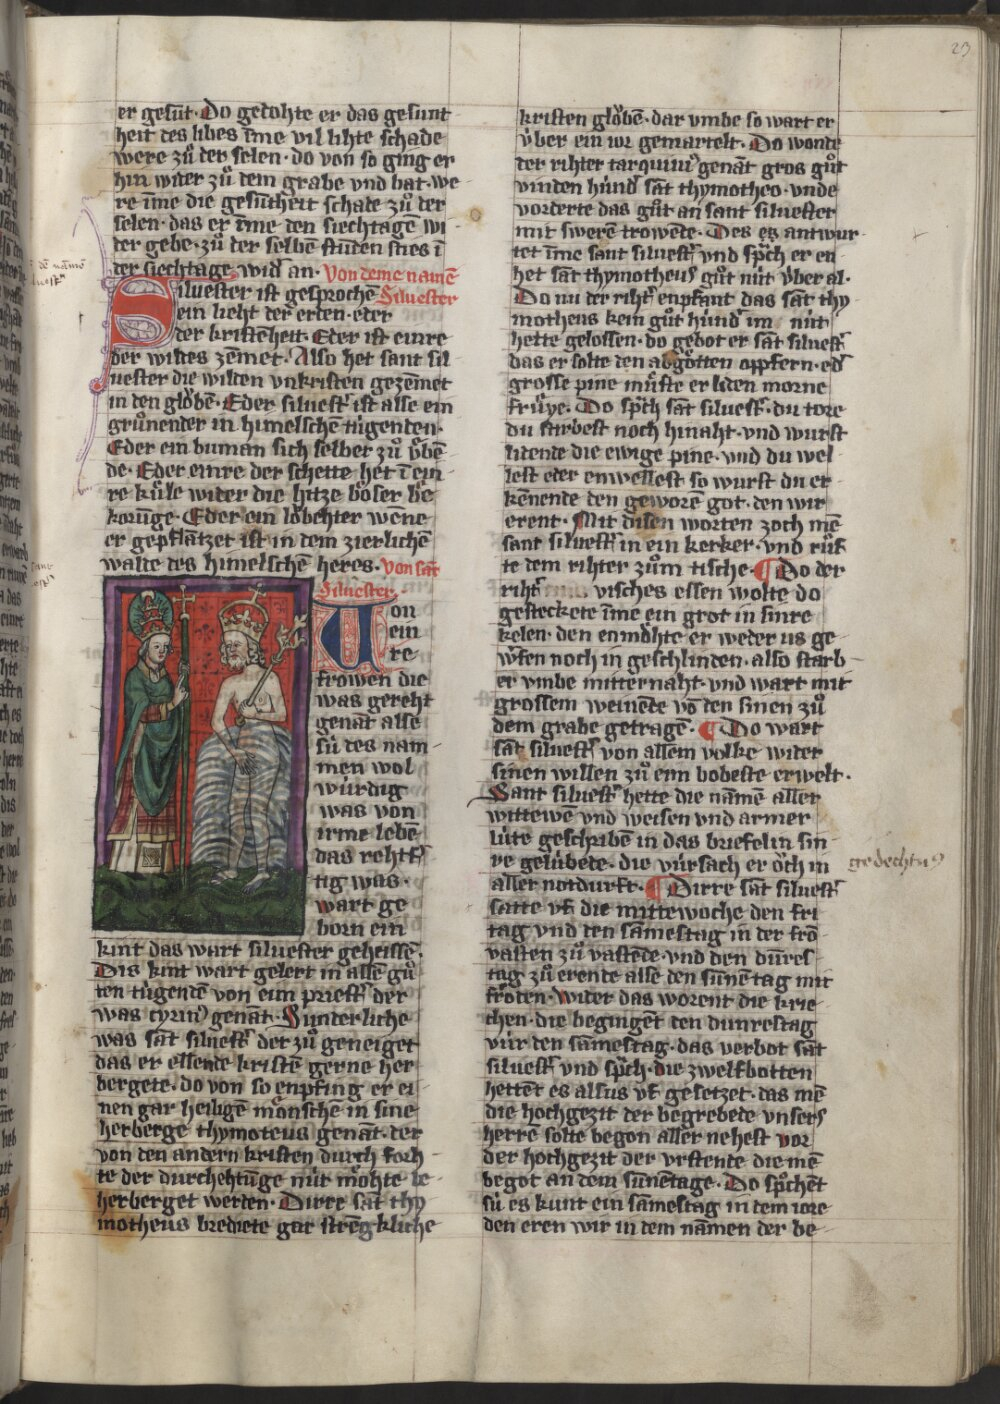 23
er gesūt· Do gedohte er das gesunt
heit des libes īme vil lihte schade
were zů der selen· do von so ging er
hin wider zů dem grabe vnd bat· we
re īme die gesūtheit schade zů der
selen· das er īme den siechtagē wi
der gebe· zů der selbē stūden sties ī
der siechtage wid̓ an· Von deme namē
Siluester
Siluester ist gesprochē
ein lieht der erden· eder
der kristēheit· Eder ist einre
der wildes zēmet· Also het sant sil
uester die wilden vnkristen gezēmet
in den glöbē· Eder siluest̓ ist alse ein
grůnender in himelschē tugenden·
Eder ein buman sich selber zů v̓bē
de· Eder einre der schette· het ī ein
re kůle wider die hitze böser be
korūge· Eder ein löbehter wēne
er gepflātzet ist in dem zierlichē
walde des himelschē heres· Von sāt
Siluester·
Von
ein
re
frowen die
was gereht
genāt alse
sů des nam
men wol
würdig
was von
irme lebē
das rehtf̓
tig was·
wart ge
born ein
kint das wart siluester geheissē·
Dis kint wart gelert in allē gů
ten tůgendē von eim priest̓ der
was cyrin̓ genāt· Sunderliche
was sāt siluest̓ der zů geneiget
das er ellende kristē gerne her
bergete· do von so enpfing er ei
nen gar heiligē mönsche in sine
herberge thymoteus genāt· der
von den andern kristen durch forh
te der durchehtūge nüt möhte be
herberget werden· Dirre sāt thy
motheus brediete gar strēgkliche
kristen glöbē· dar vmbe so wart er
v̓ber ein ior gemartelt· Do wonde
der rihter tarquini̓ genāt gros gůt
vinden hind̓ sāt thymotheo· vnde
vorderte das gůt an sant siluester
mit swerē trowēde· Des es antwur
tet īme sant siluest̓ vnd sp̄ch er en
het sāt thymotheus gůt nüt v̓ber al·
Do nu der riht̓ enpfant das sāt thy
motheus kein gůt hind̓ im nüt
hette gelossen· do gebot er sāt siluest̓
das er solte den abgötten opffern· ed̓
grosse pine můste er liden morne
frůye· Do sp̄ch sāt siluest̓· du tore
du stirbest noch hinaht· vnd wurst
lidende die ewige pine· vnd du wel
lest eder enwellest so wurst du er
kēnende den geworē got· den wir
erent· Mit disen worten zoch mē
sant siluest̓ in ein kerker· vnd růf
te dem rihter zům tische· Do der
riht̓ visches essen wolte do
gesteckete īme ein grot in sinre
kelen· den enmöhte er weder us ge
w̓fen noch in geschlinden· also starb
er vmbe mitternaht· vnd wart mit
grossem weinēde vō den sinen zů
dem grabe getragē· Do wart
sāt siluest̓ von allem volke wider
sinen willen zů eim bobeste erwelt·
Sant siluest̓ hette die nāmē aller
wittewēn vnd weisen vnd armer
lüte geschribē in das briefelin sin
re gelübede· die vürsach er öch in
aller notdurft· Dirre sāt siluest̓
satte vf die mittewoche den fri
tag vnd den sāmestag in der frō
vasten zů vastēde· vnd den dūres
tag zů erende alse den sūnētag mit
fröden· Wider das worent die krie
chen· die begingēt den dunrestag
vür den sāmestag· das verbot sāt
siluest̓ vnd sp̄ch· die zwelfbotten
hettēt es alsus vf gesetzet· das mē
die hochgezit der begrebede vnsers
herrē solte began aller nehest vor
der hochgezit der vrstende die mē
begot an dem sūnētage· Do sp̄chēt
sü es kunt ein sāmestag in dem iore
den eren wir in dem nāmen der be
gedechtus